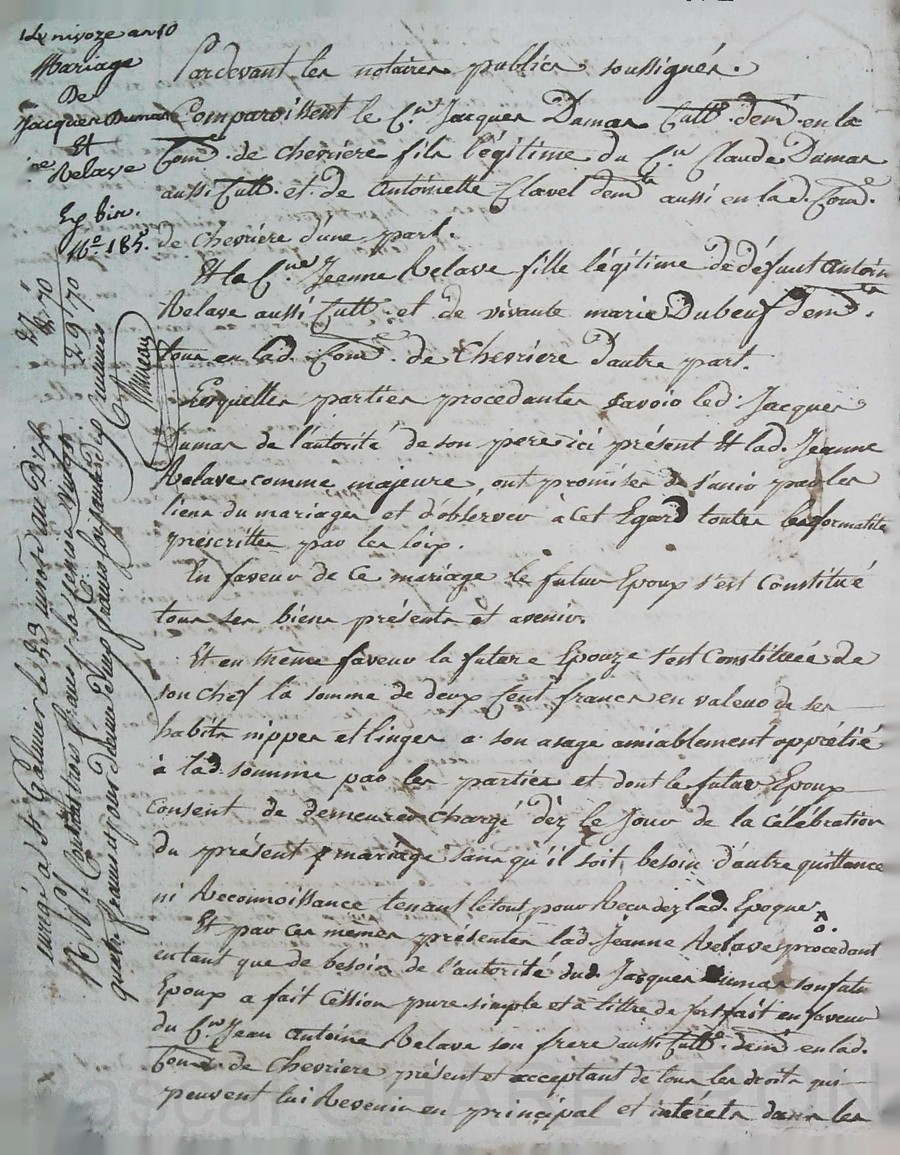 14 nivoze an 10
Mariage
De
Jacques Dumas
Et
Jne Relave
Exp bir.
N.o 185.
Pardevant les notaires publics soussignés.
Comparoissent le C.en Jacques Dumas Cultr. demt. en la
Come. de chevriere fils légitime du C.en Claude Dumas
aussi Cultr. et de Antoinette Clavel demts. aussi en lad. Come.
de chevriere d'une part.
Et la C.ne Jeanne Relave fille légitime de défunt antoine
Relave aussi Cultr. et de vivante marie Dubeuf demts.
tous en lad. Come. de Chevriere d'autre part.
Lesquelles parties procedantes savoir led. Jacques
Dumas de l'autorité de son pere ici présent Et lad. Jeanne
Relave comme majeure, ont promises de s'unir par les
liens du mariage et d'observer à cet Egard toutes les formalités
prescrittes par les loix.
En faveur de Ce mariage le futur Epoux s'est Constitué
tous ses biens présents et avenir.
Et en même faveur la future Epouze s'est Constituée de
son chef la somme de deux Cent francs en valeur de ses
habits nippes et linges a son usage amiablement apprétié
à lad. somme par les parties et dont le futur Epoux
Consent de demeurer Chargé dèz le Jour de la Célébration
du présent mariage sans qu'il soit besoin d'autre quittance
ni Reconnoissance tenant le tout pour Recu dez lad. Epoque.
Et par Ces mêmes présentes lad. Jeanne Relave procedant
entant que de besoin de l'autorité dud. Jacques Dumas son futur
Epoux a fait Cession pure simple et à tittre de fortfait en faveur
du C.en Jean Antoine Relave son frere aussi Cultr. demt. en lad.
Come. de Chevriere présent et acceptant de tous les droits qui
peuvent lui Revenir en principal et intérêts dans les
27
2 70
29 70
Enregé à St Galmier le 23 nivose an Dix